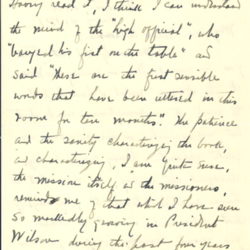 read it, I think I can understand
the mind of the "high official", who
"banged his fist on the table" and
said "These are the first sensible
words that have been uttered in this
room for ten months". The patience
and the sanity characterizing the book,
and characterizing, I am quite sure,
the mission itself and the missioners,
reminds me of that which I have seen
so markedly growing in President
Wilson during the past four years